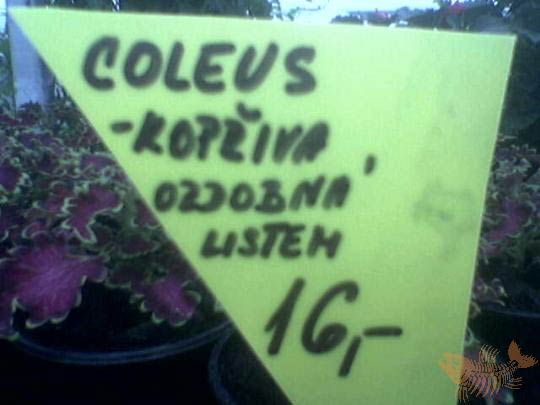 COLEUS
-KOPŽIVA,
OZDOBNA'
LISTEM
16,-